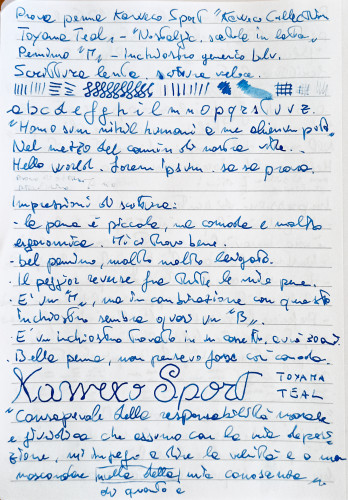 Prova penna Kaweco Sport "Kaweco Collection
Toyama Teal" - "Nostalgic. scatola in latta"
Pennino "M" - Inchiostro generico blu.
Scrittura lenta. scrittura veloce.
a b c d e f g h i l m n o p q r s t u v z.
"Homo sum nihil humani a me alienum puto"
Nel mezzo del cammin di nostra vita...
Hello world. Lorem ipsum. sa sa prova.
Impressioni di scrittura:
- la penna è piccola, ma comoda e molto
ergonomica. Mi ci trovo bene.
- bel pennino, molto molto levigato.
- Il peggior reverse fra tutte le mie penne.
- E' un "M", ma in combinazione con questo
inchiostro sembra quasi un "B".
- E' un inchiostro trovato in un cassetto, circa 30 anni.
- Bella penna, non pensavo fosse così comoda.
Kaweco Sport TOYAMA
TEAL
"Consapevole della responsabilità morale
e giuridica che assumo con la mia deposi-
zione, mi impegno a dire la verità e a non
nascondere nulla della mia conoscenza"
di quanto è